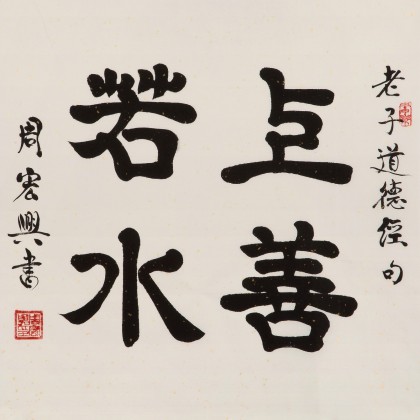 老子道德經句
上善
若水
周宏興書